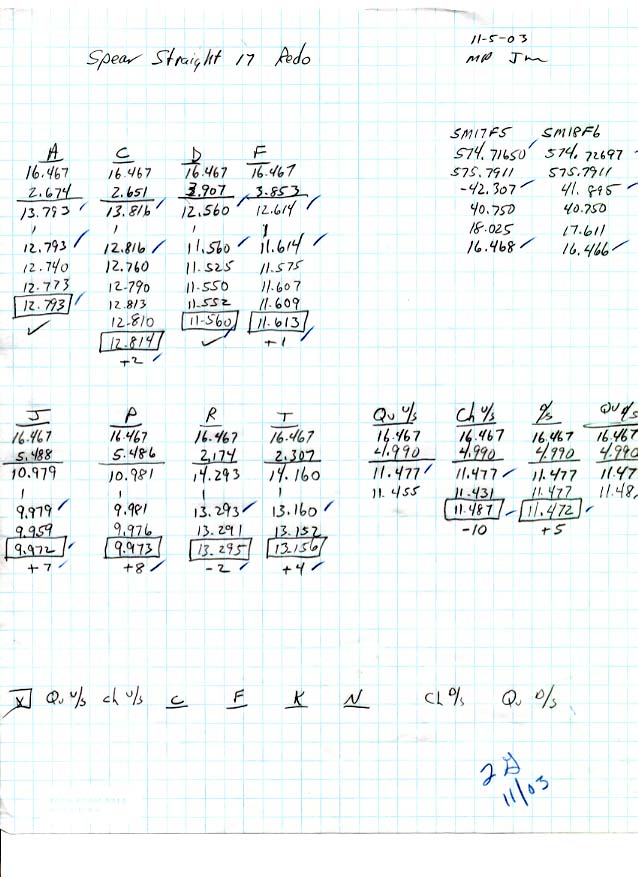 11-5-03
Spear Straight 17 Redo
SM17F5 SM18F6
574.71650 ✓ 574.72697
575.7911 575.7911
-42.307 ✓ 41.895 ✓
40.750 40.750
18.025 17.611
16.468 ✓ 16.466 ✓
A C D F
16.467 16.467 16.467 16.467
2.674 2.651 3.907 3.853
13.793 ✓ 13.816 ✓ 12.560 ✓ 12.614 ✓
1 1 1 1
12.793 ✓ 12.816 ✓ 11.560 ✓ 11.614 ✓
12.740 12.760 11.525 11.575
12.773 12.790 11.550 11.607
12.793 ✓ 12.813 11.552 11.609
✓ 12.810 11.560 ✓ 11.613 ✓
12.814 ✓ ✓ +1 ✓
+2 ✓
J P R T Qu u/s Ch u/s D/s Qu D/s
16.467 16.467 16.467 16.467 16.467 16.467 16.467 16.467
5.488 5.486 2.174 2.307 4.990 4.990 4.990 4.990
10.979 10.981 14.293 14.160 11.477 ✓ 11.477 ✓ 11.477 11.47
1 1 1 1 11.455 11.431 11.477 11.48
9.979 ✓ 9.981 13.293 ✓ 13.160 ✓ 11.487 ✓ 11.472 ✓
9.959 9.976 13.291 13.152 -10 +5
9.972 ✓ 9.973 ✓ 13.295 ✓ 13.156 ✓
+7 ✓ +8 ✓ -2 ✓ +4 ✓
X Qu u/s Ch u/s C F K N Ch D/s Qu D/s
11/03